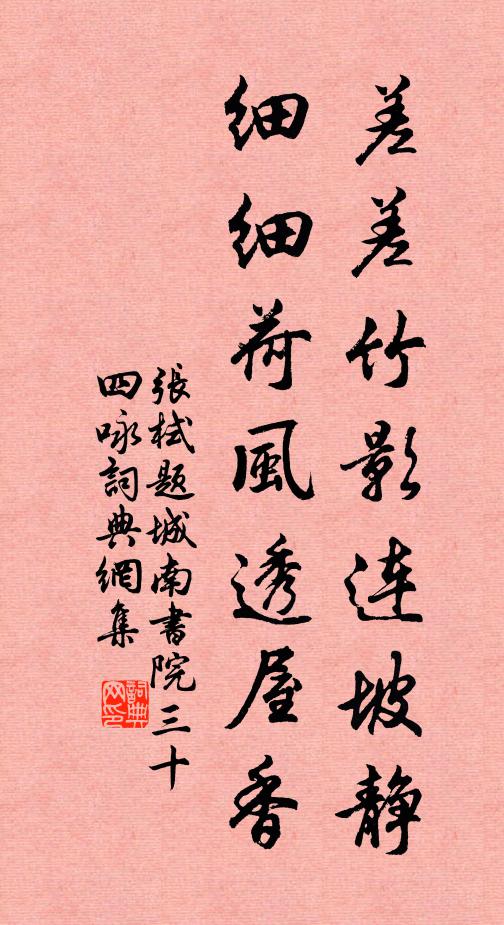 差差竹影连坡静
细细荷風透屋香
張栻题城南書院三十
四咏詞典網集
詞典网印